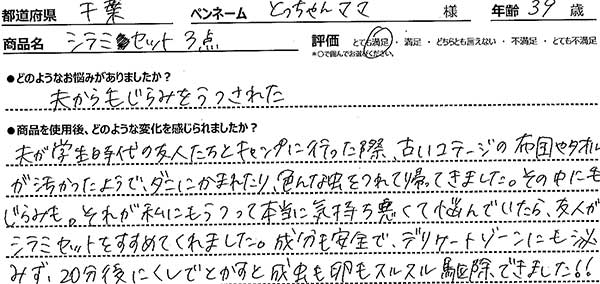 都道府県 千葉 ペンネーム とっちゃんママ 様 年齢 39 歳
商品名 シラミセット3点 評価 とても満足・満足・どちらとも言えない・不満足・とても不満足
*○で囲んでお選びください。
●どのようなお悩みがありましたか?
夫から毛じらみをうつされた
●商品を使用後、どのような変化を感じられましたか?
夫が学生時代の友人たちとキャンプに行った際、古いコテージの布団やタオル
が汚かったようで、ダニにかまれたり、色んな虫をつれて帰ってきました。その中に毛
じらみも。それが私にもうつって本当に気持ち悪くて悩んでいたら、友人が
シラミセットをすすめてくれました。成分も安全で、デリケートゾーンにも沁
みず、20分後にくしでとかすと成虫も卵もスルスル駆除できました!!